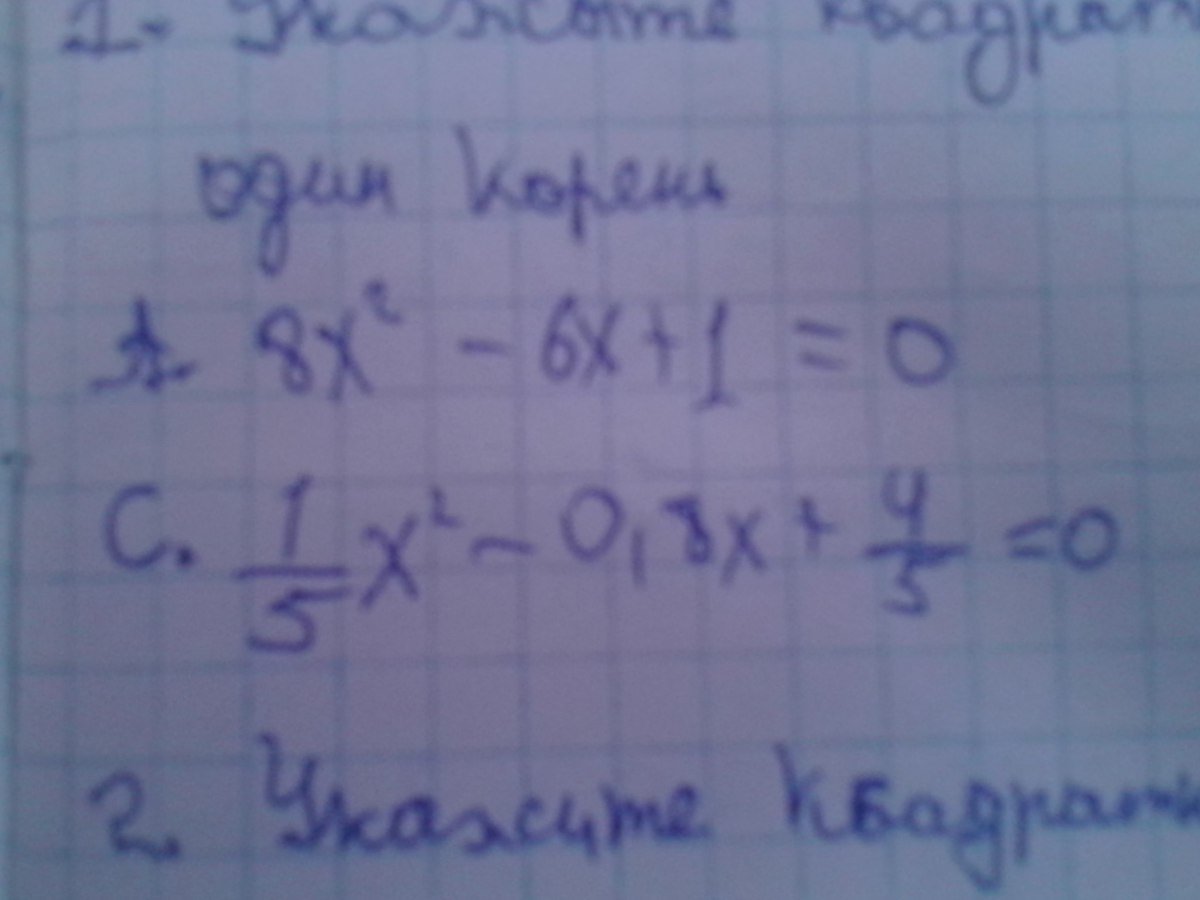 1. Укажыте квадратн
один корень
A. 8x² - 6x + 1 = 0
C. 1/5 x² - 0,8x + 4/5 = 0
2. Укажите квадратн